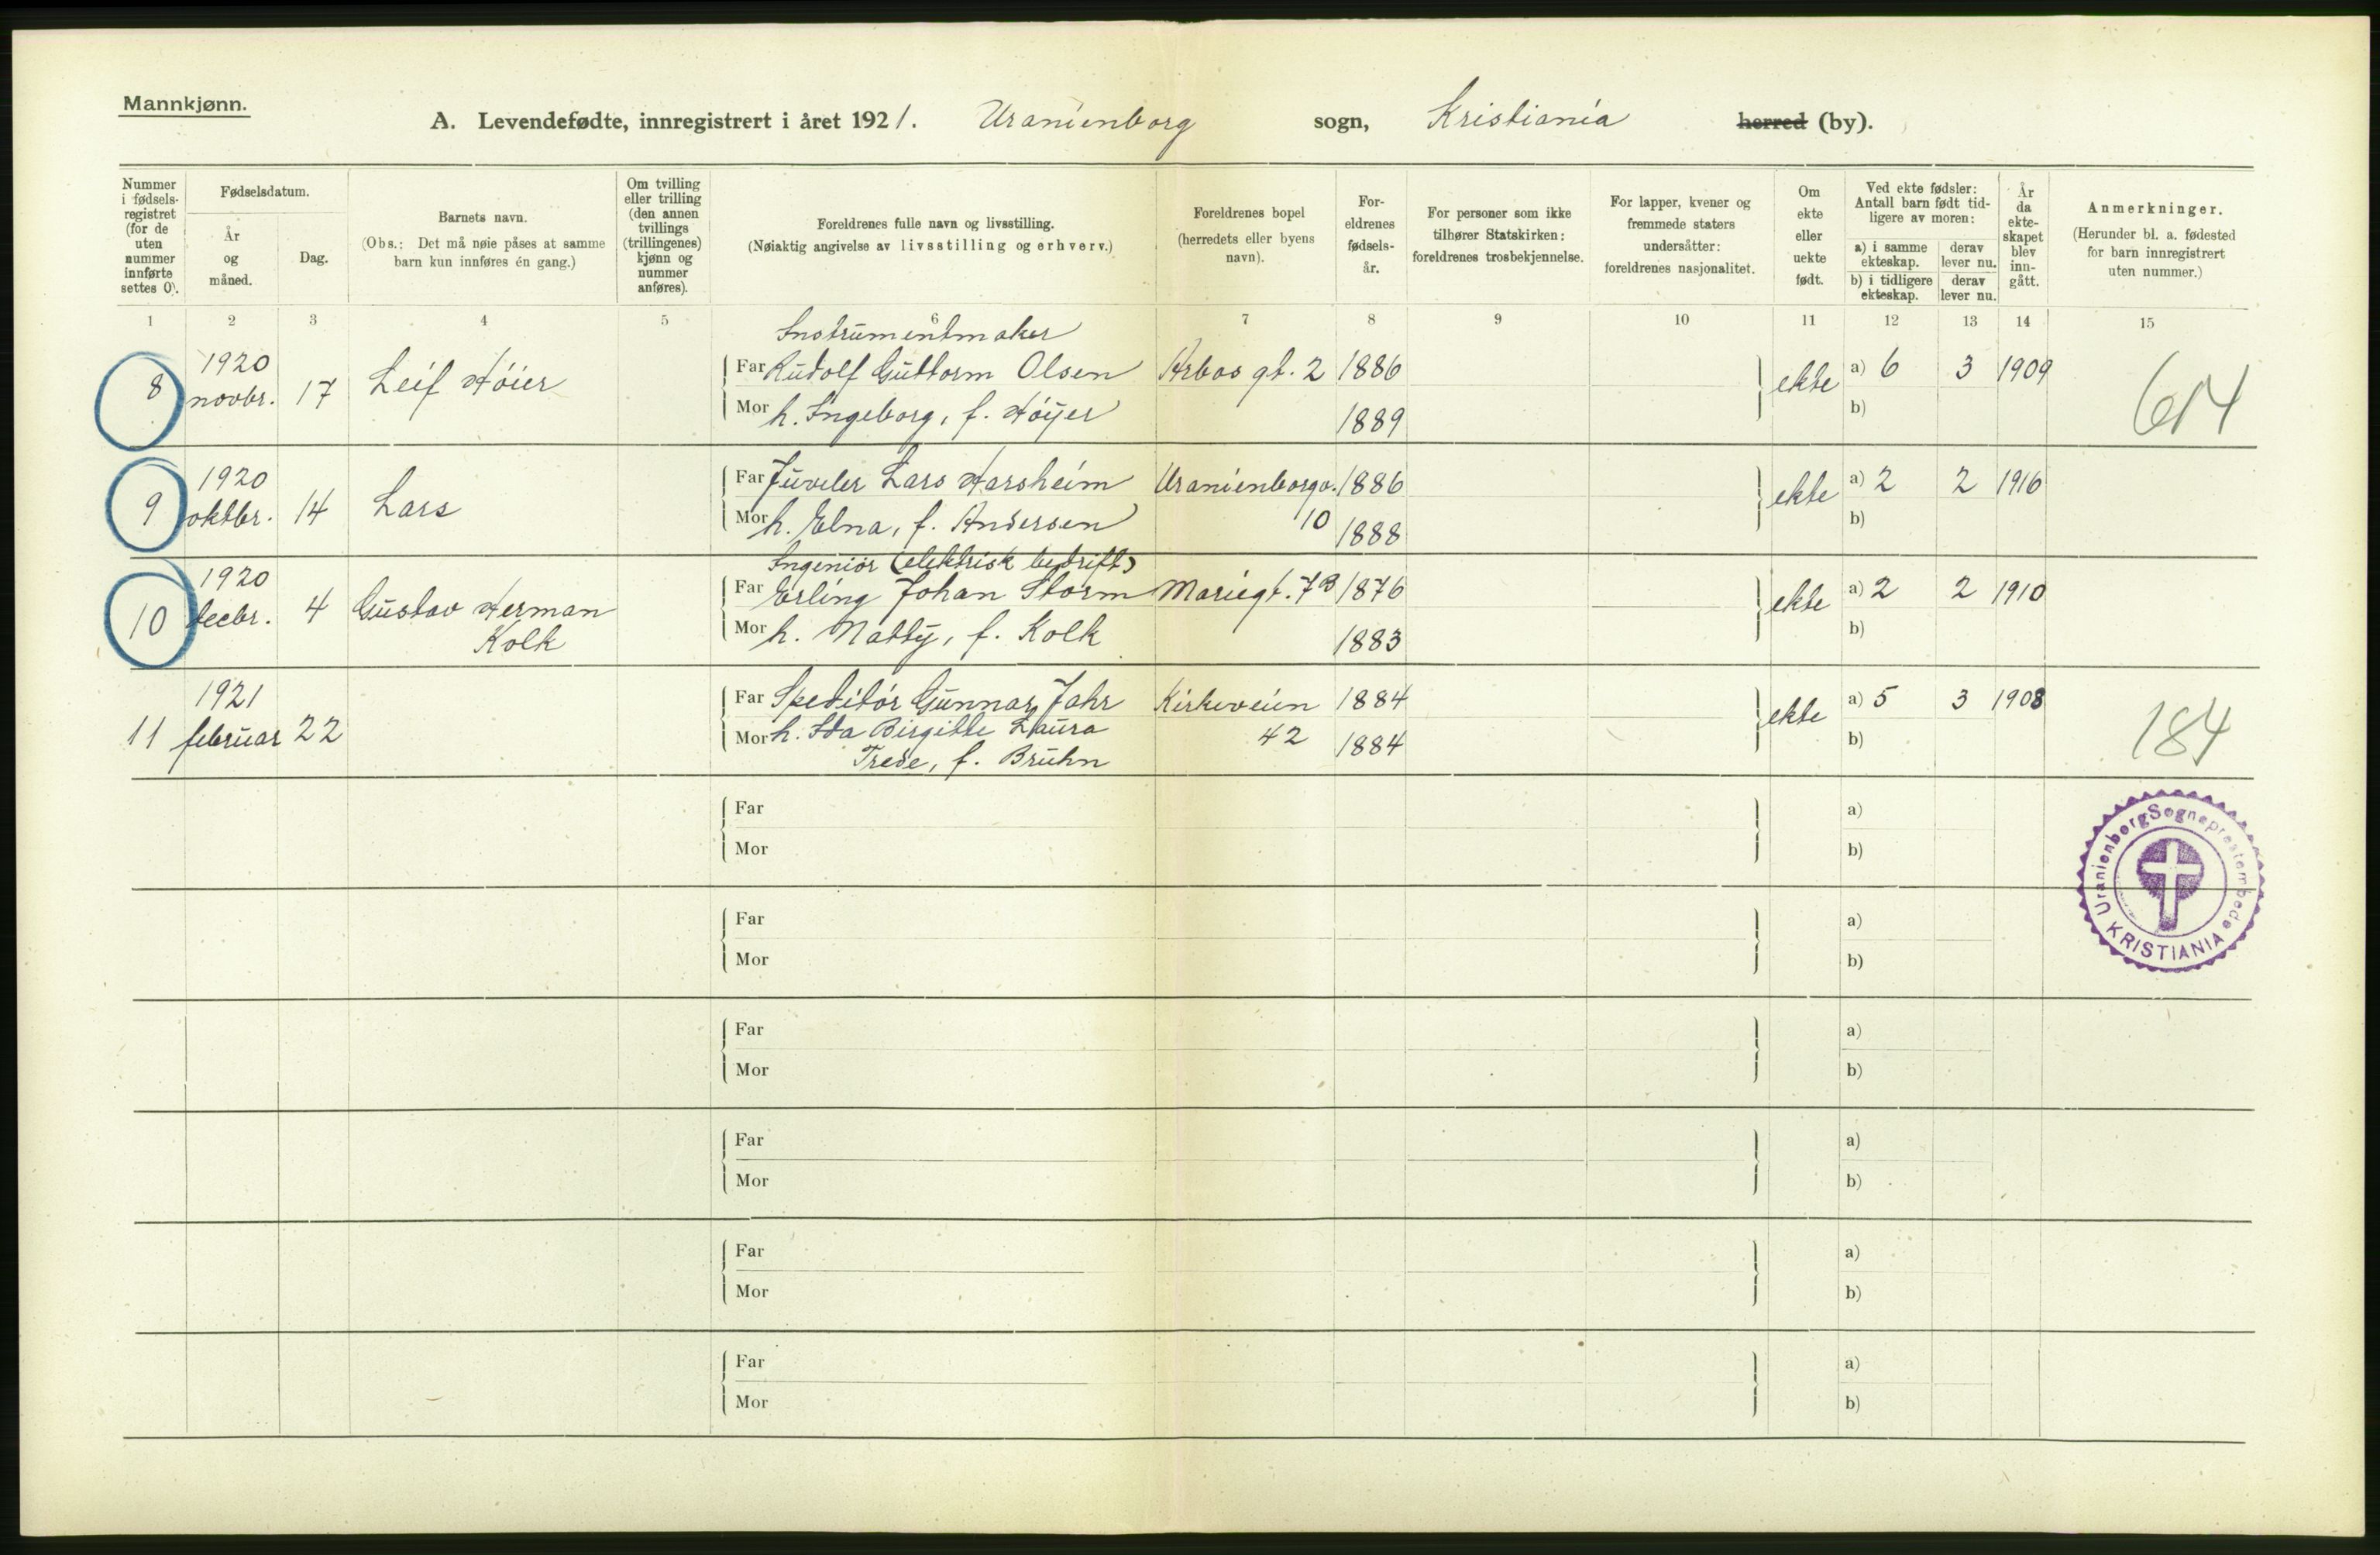 Mannkjønn.
A. Levendefødte, innregistrert i året 1921. Uranienborg sogn, Kristiania herred (by).
Nummer i fødsels-registret (for de uten nummer innførte settes 0).
Fødselsdatum.
År og måned.
Dag.
Barnets navn.
(Obs.: Det må nøie påses at samme barn kun innføres én gang.)
Om tvilling eller trilling (den annen tvillings (trillingenes) kjønn og nummer anføres).
Foreldrenes fulle navn og livsstilling.
(Nøiaktig angivelse av livsstilling og erhverv.)
Foreldrenes bopel (herredets eller byens navn).
For-eldrenes fødsels-år.
For personer som ikke tilhører Statskirken: foreldrenes trosbekjennelse.
For lapper, kvener og fremmede staters undersåtter: foreldrenes nasjonalitet.
Om ekte eller uekte født.
Ved ekte fødsler: Antall barn født tid-ligere av moren:
a) i samme ekteskap.
derav lever nu.
b) i tidligere ekteskap.
derav lever nu.
År da ekte-skapet blev inn-gått.
Anmerkninger.
(Herunder bl. a. fødested for barn innregistrert uten nummer.)
1 2 3 4 5 6 7 8 9 10 11 12 13 14 15
Instrumentmaker
8 1920 novbr. 17 Leif Høier Far Rudolf Guttorm Olsen Arbos gt. 2 1886 ekte a) 6 3 1909 614
Mor h. Ingeborg, f. Høyer 1889 b)
9 1920 oktbr. 14 Lars Far Juveler Lars Harsheim Uranienborgv. 1886 ekte a) 2 2 1916
Mor h. Elna, f. Andersen 10 1888 b)
Ingeniør (elektrisk bedrift)
10 1920 decbr. 4 Gustav Herman Far Erling Johan Storm Mariegt. 7B 1876 ekte a) 2 2 1910
Kolk Mor h. Natty, f. Kolk 1883 b)
11 1921 februar 22 Far Speditør Gunnar Jahr Kirkeveien 1884 ekte a) 5 3 1908 184
Mor h. Ida Birgitte Laura 42 1884 b)
Trede, f. Bruhn
Far a)
Mor b)
Uranienborg Sogneprestembede
KRISTIANIA
Far a)
Mor b)
Far a)
Mor b)
Far a)
Mor b)
Far a)
Mor b)
Far a)
Mor b)